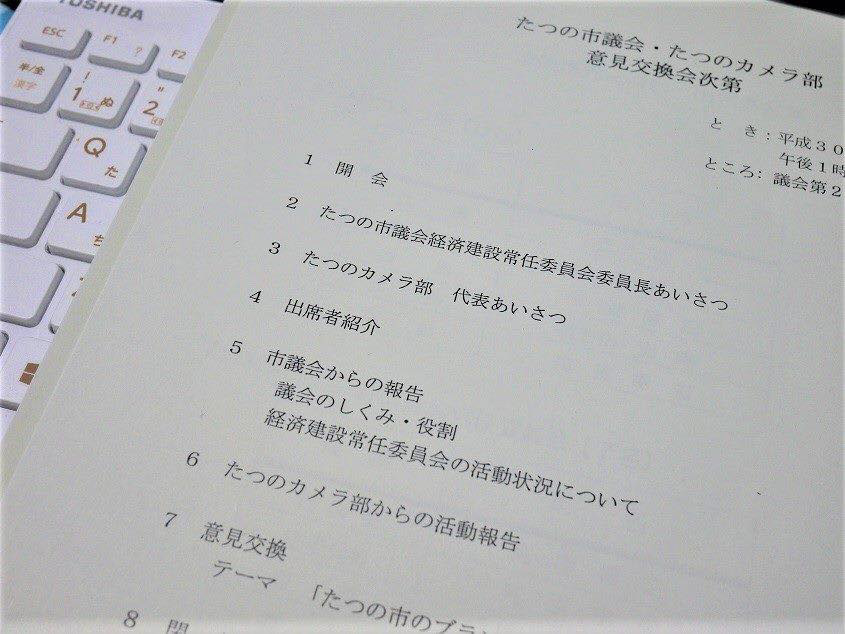 TOSHIBA
ESC
F1
F2
半/全
漢字
!
1
ぬ
"
2
?
Q
た
A
ち
たつの市議会・たつのカメラ部
意見交換会次第
と き：平成３０
午後１時
ところ：議会第２
1 開 会
2 たつの市議会経済建設常任委員会委員長あいさつ
3 たつのカメラ部 代表あいさつ
4 出席者紹介
5 市議会からの報告
議会のしくみ・役割
経済建設常任委員会の活動状況について
6 たつのカメラ部からの活動報告
7 意見交換
テーマ 「たつの市のブラン
8 閉